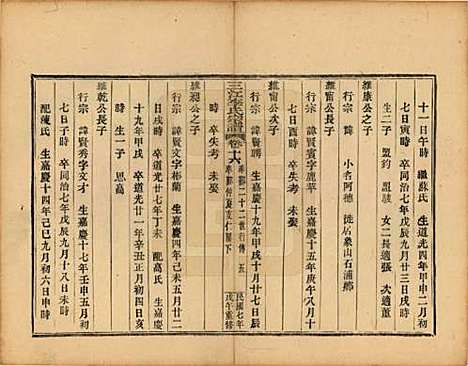 十一日午時 繼蘇氏 生道光四年甲申二月初
七日寅時 卒同治七年戊辰九月廿三日戌時
生二子 盟鈞 盟駿 女二長適張 次適董
維康公之子
行宗 諱賢 小名阿德 徙居象山石浦鄉
維甯公長子
行宗 諱賢賓字鹿苹 生嘉慶十五年庚午八月廿
七日酉時 卒失考 未娶
維甯公次子
行宗 諱賢聘 生嘉慶十九年甲戌十月廿七日辰
時 卒失考 未娶
三江李氏宗譜 卷十六
民國七年戊午重修
維昶公之子
行宗 諱賢文字彬蘭 生嘉慶四年己未五月廿二
日戌時 卒道光廿七年丁未 配高氏 生嘉慶
十九年甲戌 卒道光廿一年辛丑正月初四日亥
時 生一子 思高
維乾公長子
行宗 諱賢秀字文才 生嘉慶十七年壬申五月初
七日子時 卒同治七年戊辰九月十八日未時
配陳氏 生嘉慶十四年己巳九月初六日申時